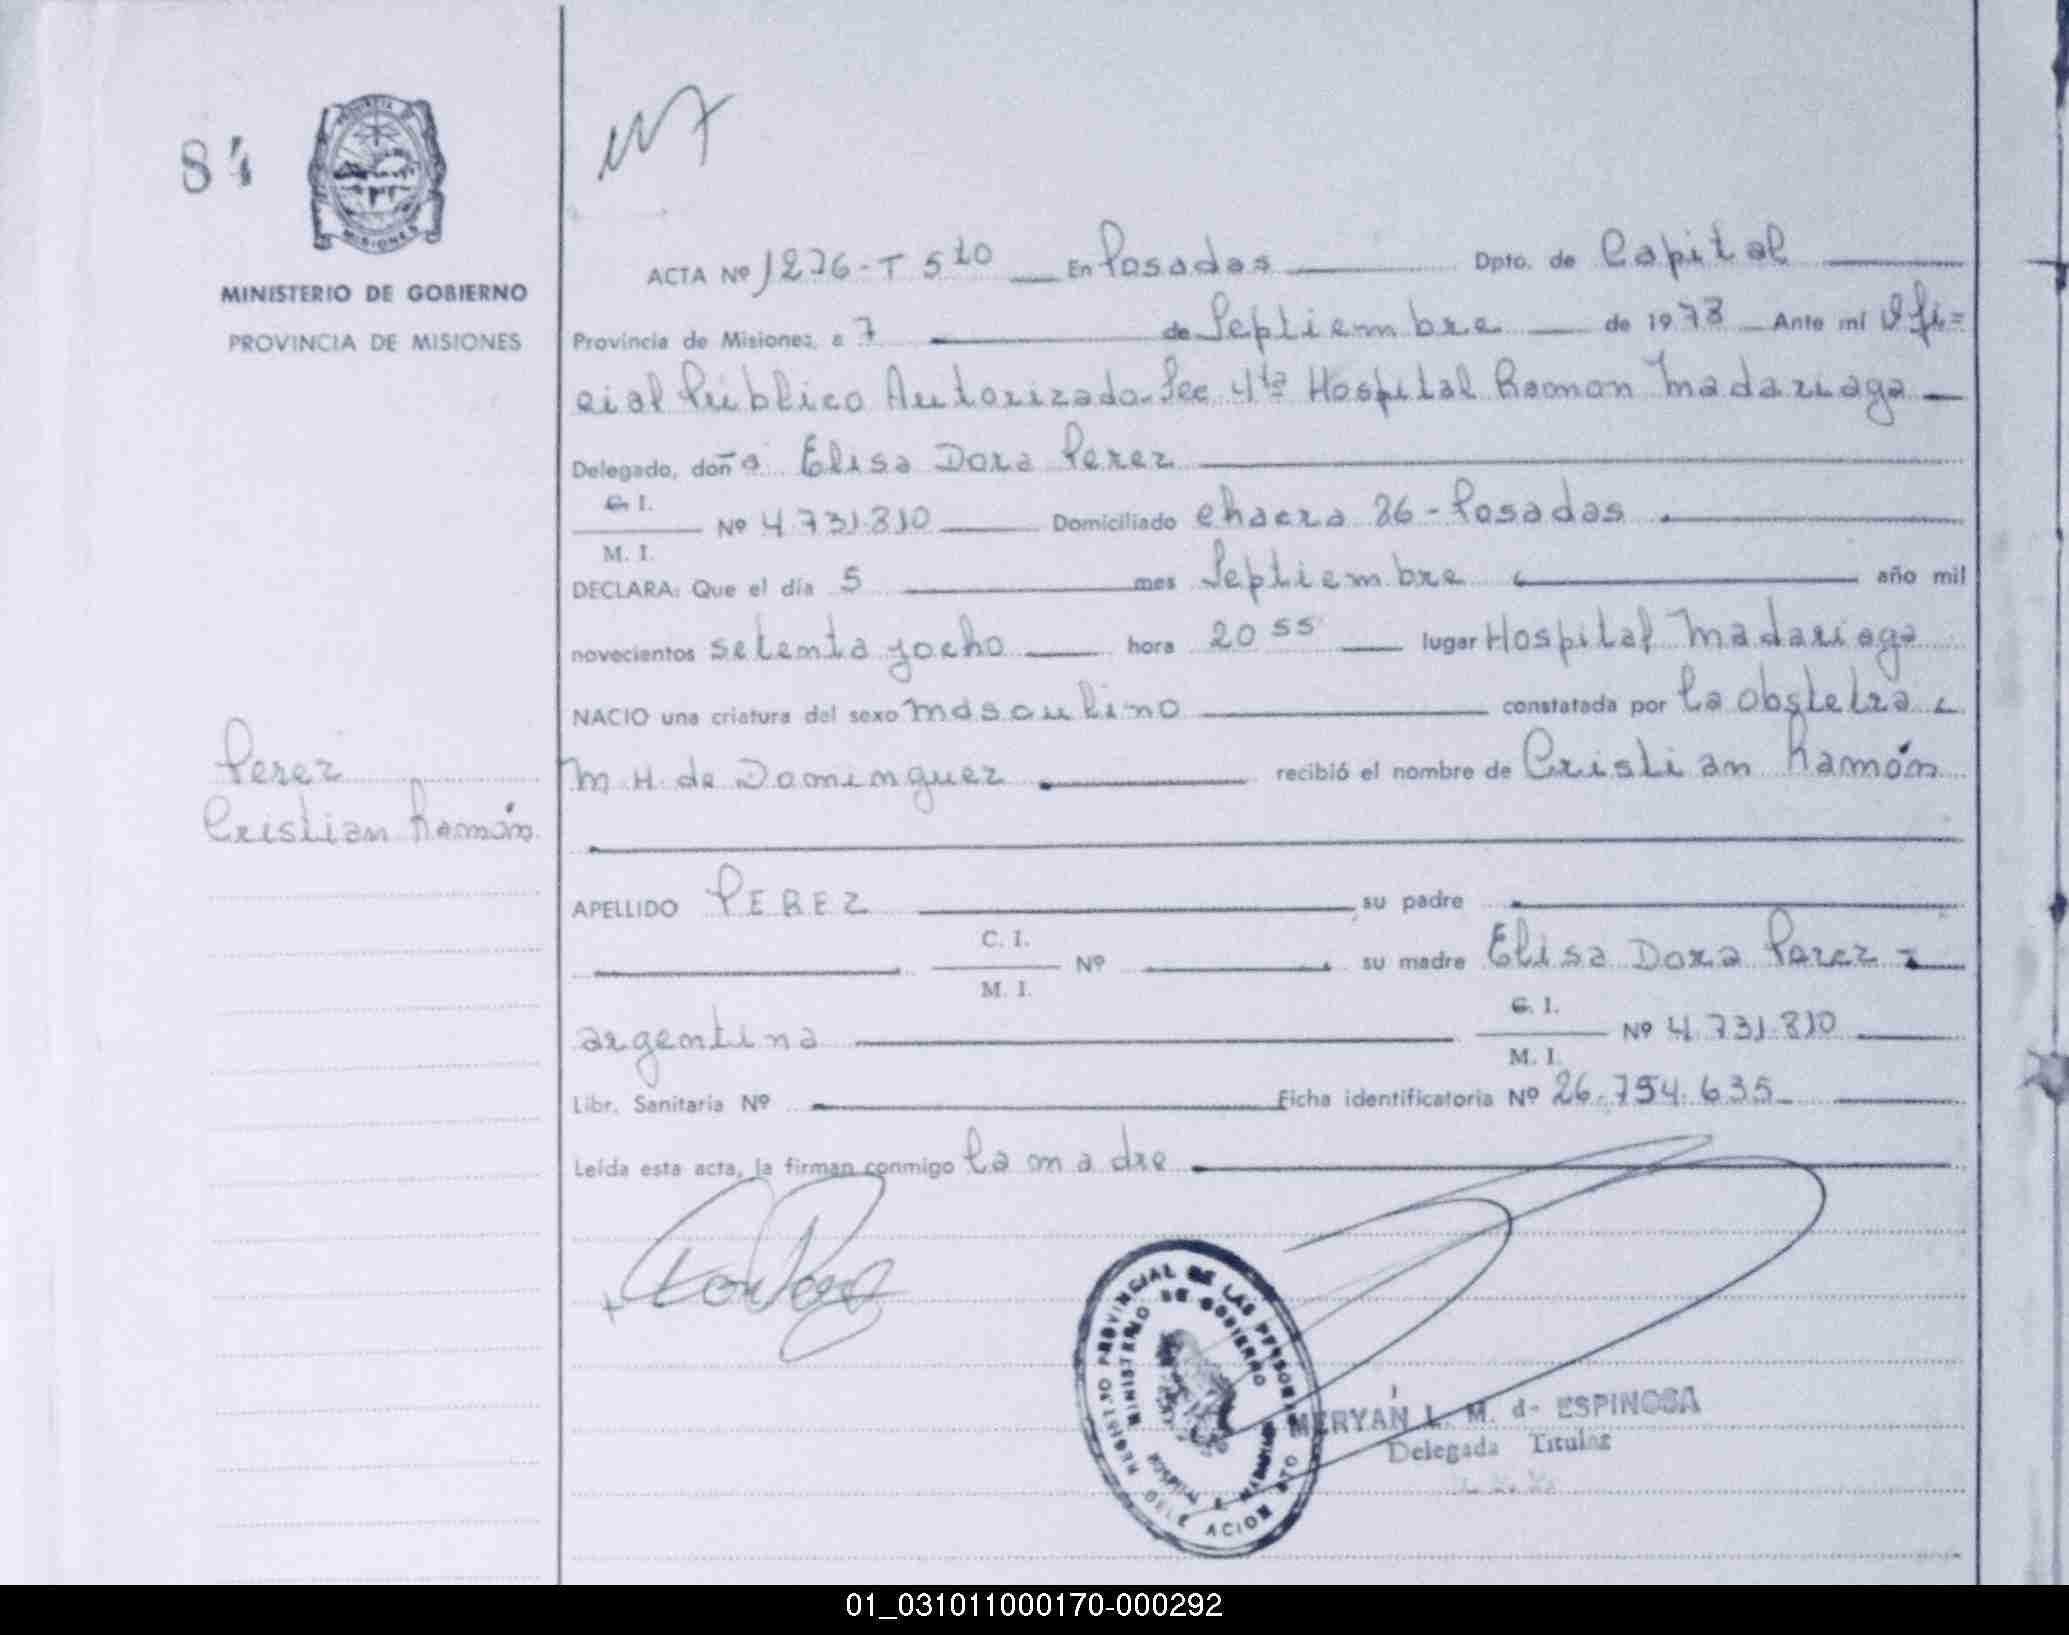 84
PROVINCIA DE
MISIONES
MINISTERIO DE GOBIERNO
PROVINCIA DE MISIONES
Perez
Cristian Ramón
ACTA Nº 1276-T 5to En Posadas Dpto. de Capital
Provincia de Misiones, a 7 de Septiembre de 1978 Ante mí Ofi=
cial Público Autorizado Sec 4ta Hospital Ramon Madariaga
Delegado, doña Elisa Dora Perez
C. I.
Nº 4.731.810 Domiciliado chacra 26 - Posadas
M. I.
DECLARA: Que el día 5 mes Septiembre año mil
novecientos setenta yocho hora 20 55 lugar Hospital Madariaga
NACIO una criatura del sexo masculino constatada por la obstetra
M H. de Dominguez recibió el nombre de Cristian Ramón
APELLIDO PEREZ su padre
C. I.
Nº su madre Elisa Dora Perez
M. I.
argentina C. I. Nº 4.731.810
M. I.
Libr. Sanitaria Nº Ficha identificatoria Nº 26.754.635
Leída esta acta, la firman conmigo la madre
REGISTRO PROVINCIAL DE LAS PERSONAS
MINISTERIO DE GOBIERNO
MERYAN L. M. de ESPINOSA
Delegada Titular
01_031011000170-000292